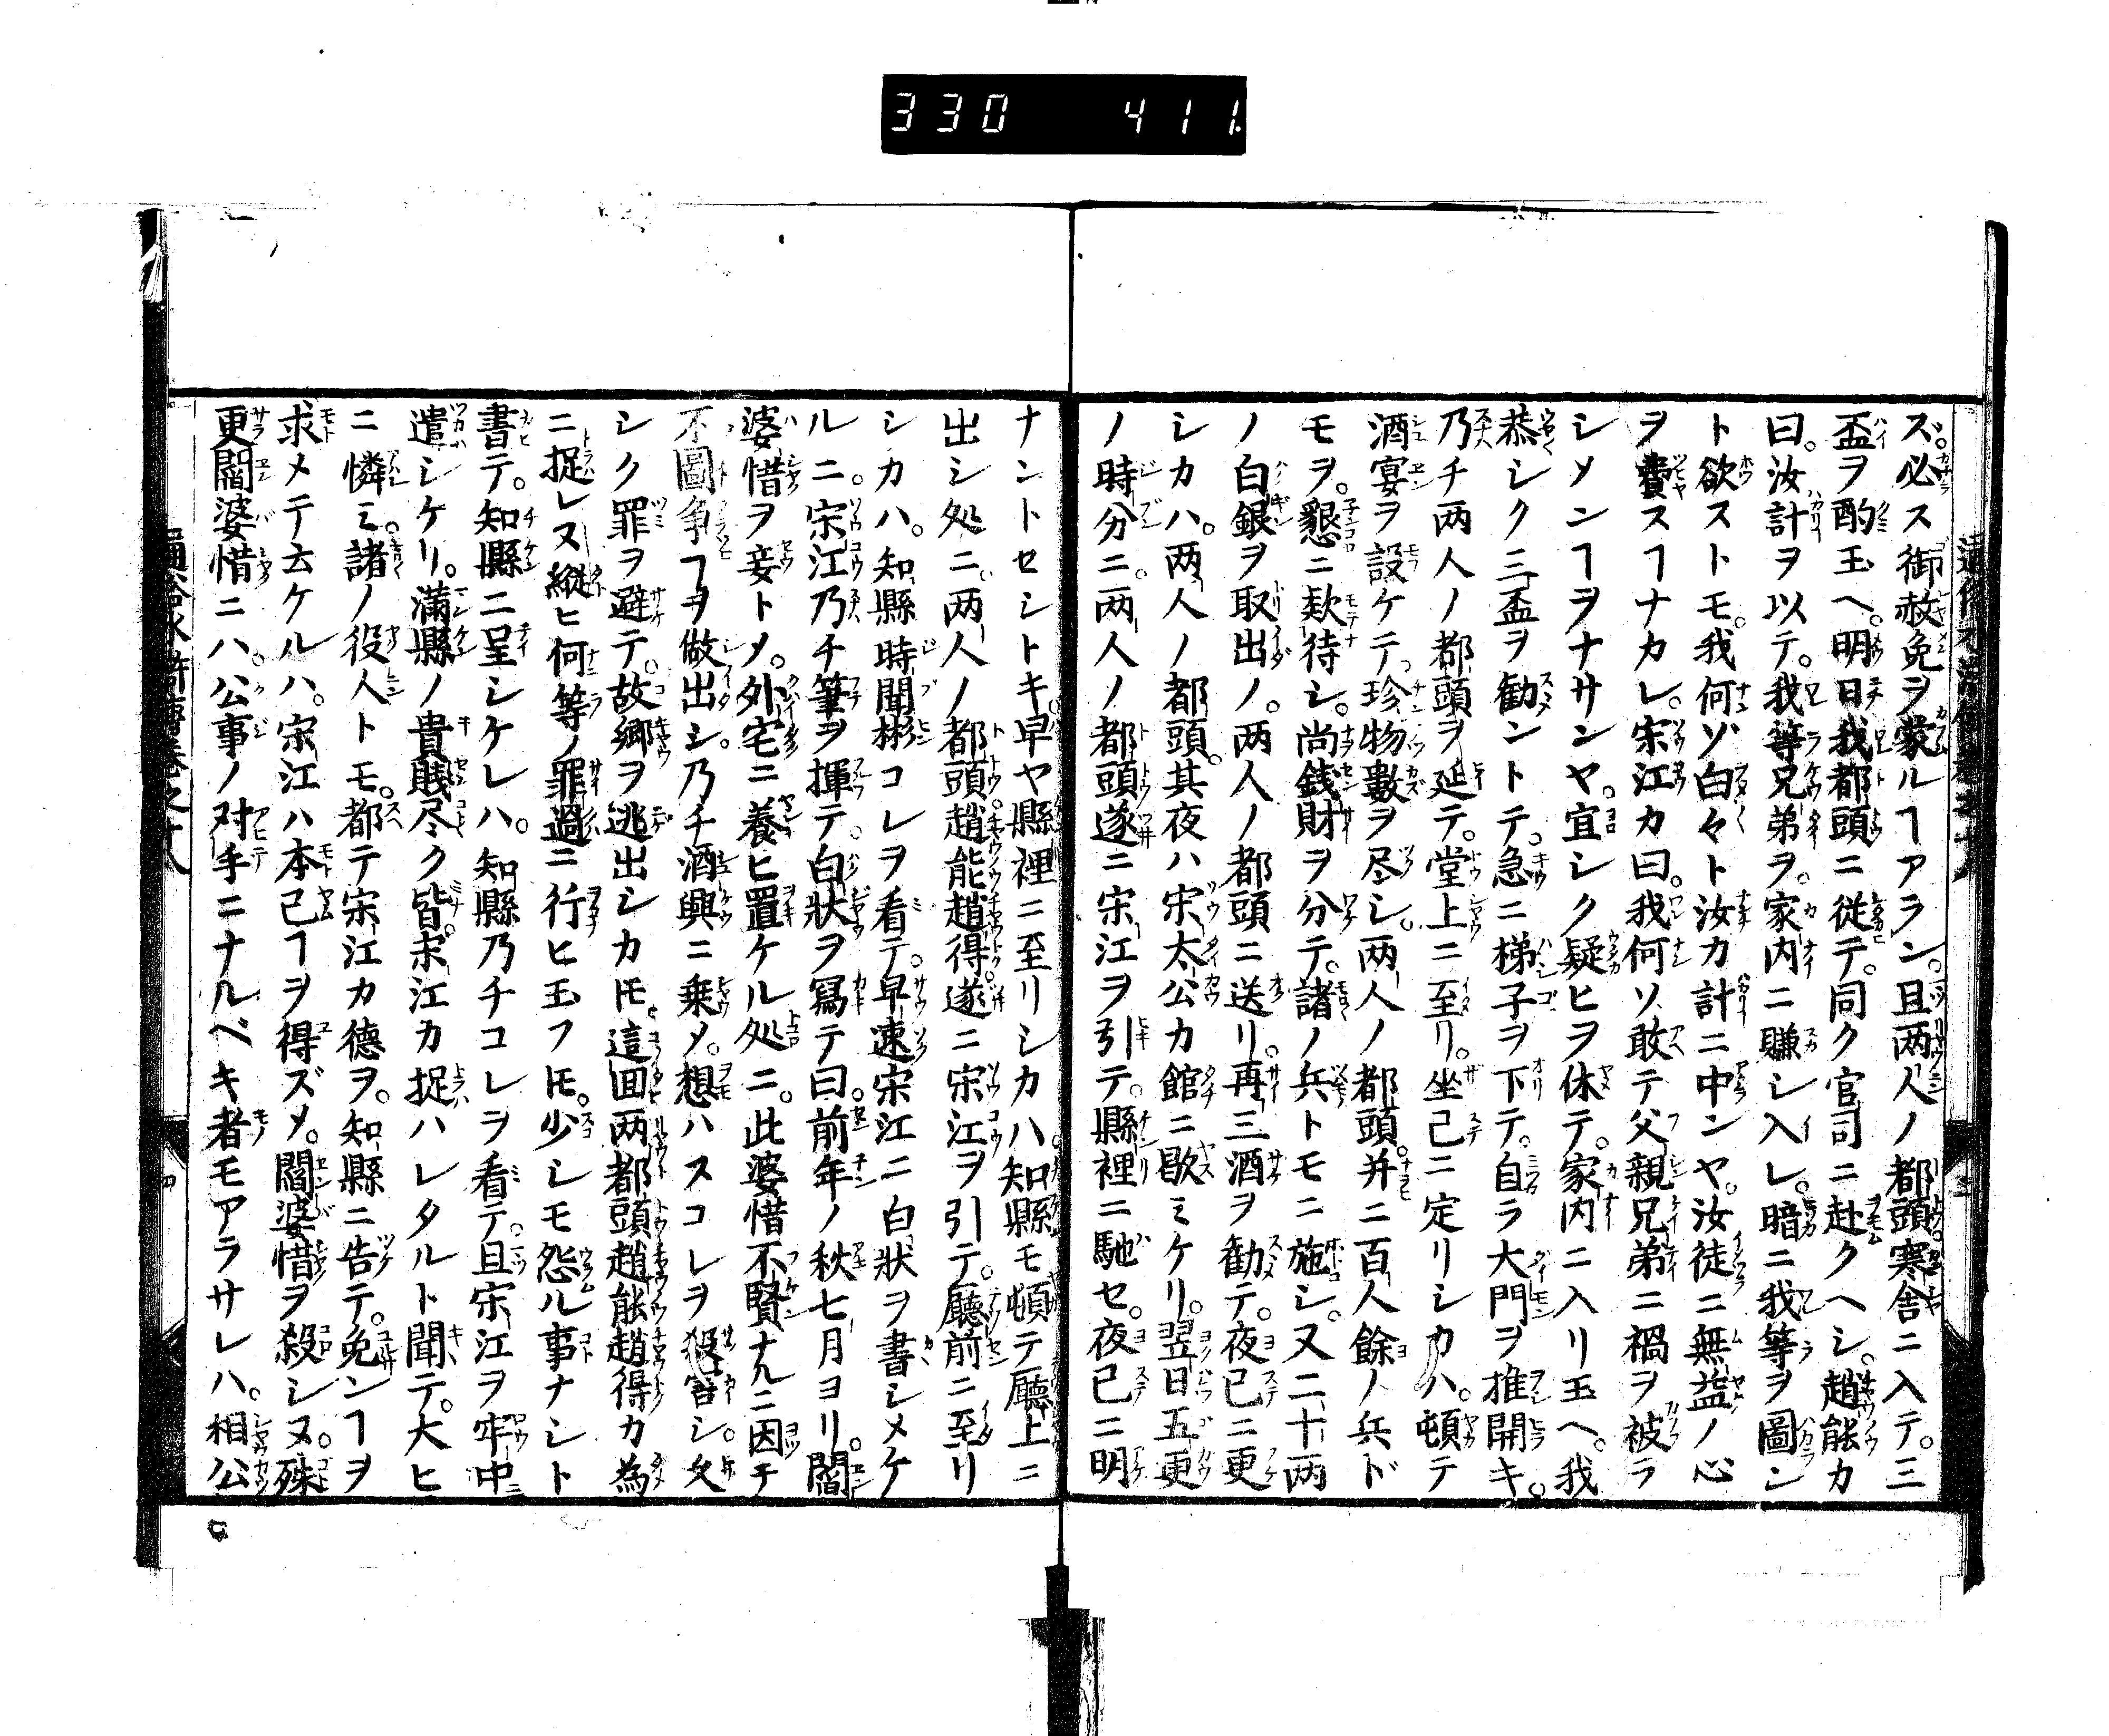 330 411.
ズ。必ス御赦免ヲ蒙ルヿアラン。且両人ノ都頭。寒舎ニ入テ。三
盃ヲ酌玉ヘ。明日我都頭ニ従テ。同ク官司ニ赴クヘシ。趙能カ
曰。汝計ヲ以テ。我等兄弟ヲ。家内ニ賺シ入レ。暗ニ我等ヲ圖ン
ト欲ストモ。我何ゾ白々ト汝カ計ニ中ンヤ。汝徒ニ無益ノ心
ヲ費スヿナカレ。宋江カ曰。我何ソ敢テ父親兄弟ニ禍ヲ被ラ
シメンヿヲナサンヤ。宜シク疑ヒヲ休テ。家内ニ入リ玉ヘ。我
恭シク三盃ヲ勸ントテ。急ニ梯子ヲ下テ。自ラ大門ヲ推開キ。
乃チ両人ノ都頭ヲ延テ。堂上ニ至リ。坐已ニ定リシカハ。頓テ
酒宴ヲ設ケテ。珍物數ヲ尽シ。両人ノ都頭。并ニ百人餘ノ兵ド
モヲ。懇ニ欵待シ。尚錢財ヲ分テ。諸ノ兵トモニ施シ。又二十両
ノ白銀ヲ取出ノ。両人ノ都頭ニ送リ。再三酒ヲ勸テ。夜已ニ更
シカハ。両人ノ都頭。其夜ハ宋太公カ館ニ歇ミケリ。翌日五更
ノ時分ニ。両人ノ都頭遂ニ宋江ヲ引テ。縣裡ニ馳セ。夜已ニ明
ナントセシトキ。早ヤ縣裡ニ至リシカハ。知縣モ頓テ廳上ニ
出シ処ニ。両人ノ都頭趙能趙得。遂ニ宋江ヲ引テ。廳前ニ至リ
シカハ。知縣時聞彬コレヲ看テ。早速宋江ニ白狀ヲ書シメケ
ルニ。宋江乃チ筆ヲ揮テ。白狀ヲ寫テ曰。前年ノ秋七月ヨリ。閻
婆惜ヲ妾トメ。外宅ニ養ヒ置ケル処ニ。此婆惜不賢ナルニ因チ
不圖争ヿヲ做出シ。乃チ酒興ニ乗メ。想ハスコレヲ殺害シ。久
シク罪ヲ避テ。故郷ヲ逃出シカ𪜈。這囬両都頭趙能趙得カ為
ニ捉レヌ縱ヒ何等ノ罪過ニ行ヒ玉フ𪜈。少シモ怨ル事ナシト
書テ。知縣ニ呈シケレハ。知縣乃チコレヲ看テ。且宋江ヲ牢中ニ
遣シケリ。滿縣ノ貴賎尽ク皆。宋江カ捉ハレタルト聞テ。大ヒ
ニ憐ミ。諸ノ役人トモ。都テ宋江カ德ヲ。知縣ニ告テ。免ンヿヲ
求メテ云ケルハ。宋江ハ本已ヿヲ得ズメ。閻婆惜ヲ殺シヌ。殊
更閻婆惜ニハ。公事ノ对手ニナルベキ者モアラサレハ。相公